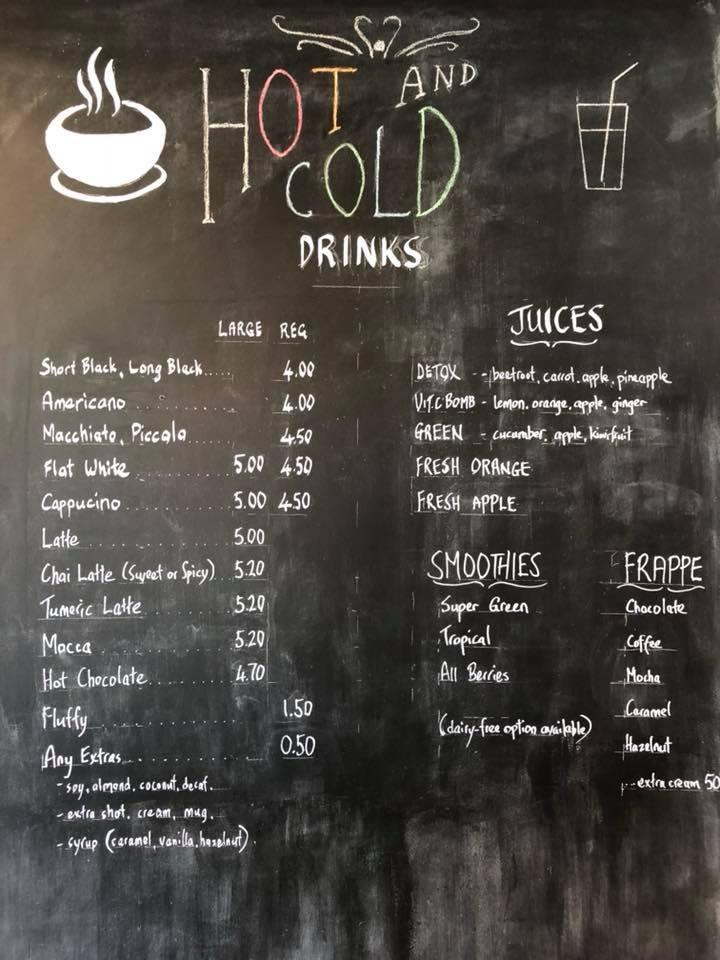 HOT AND
COLD
DRINKS
LARGE REG
Short Black, Long Black..... 4.00
Americano ............ 4.00
Macchiato, Piccola ....... 4.50
Flat White ............ 5.00 4.50
Cappucino ............ 5.00 4.50
Latte ............ 5.00
Chai Latte (Sweet or Spicy).. 5.20
Tumeric Latte ......... 5.20
Mocca ............ 5.20
Hot Chocolate ......... 4.70
Fluffy ............ 1.50
Any Extras ............ 0.50
- soy, almond, coconut, decaf.
- extra shot, cream, mug.
- syrup (caramel, vanilla, hazelnut).
JUICES
DETOX -- beetroot, carrot, apple, pineapple
VIT.C BOMB - lemon, orange, apple, ginger
GREEN - cucumber, apple, kiwifruit
FRESH ORANGE
FRESH APPLE
SMOOTHIES
Super Green
Tropical
All Berries
(dairy-free option available)
FRAPPE
Chocolate
Coffee
Mocha
Caramel
Hazelnut
-- extra cream 50